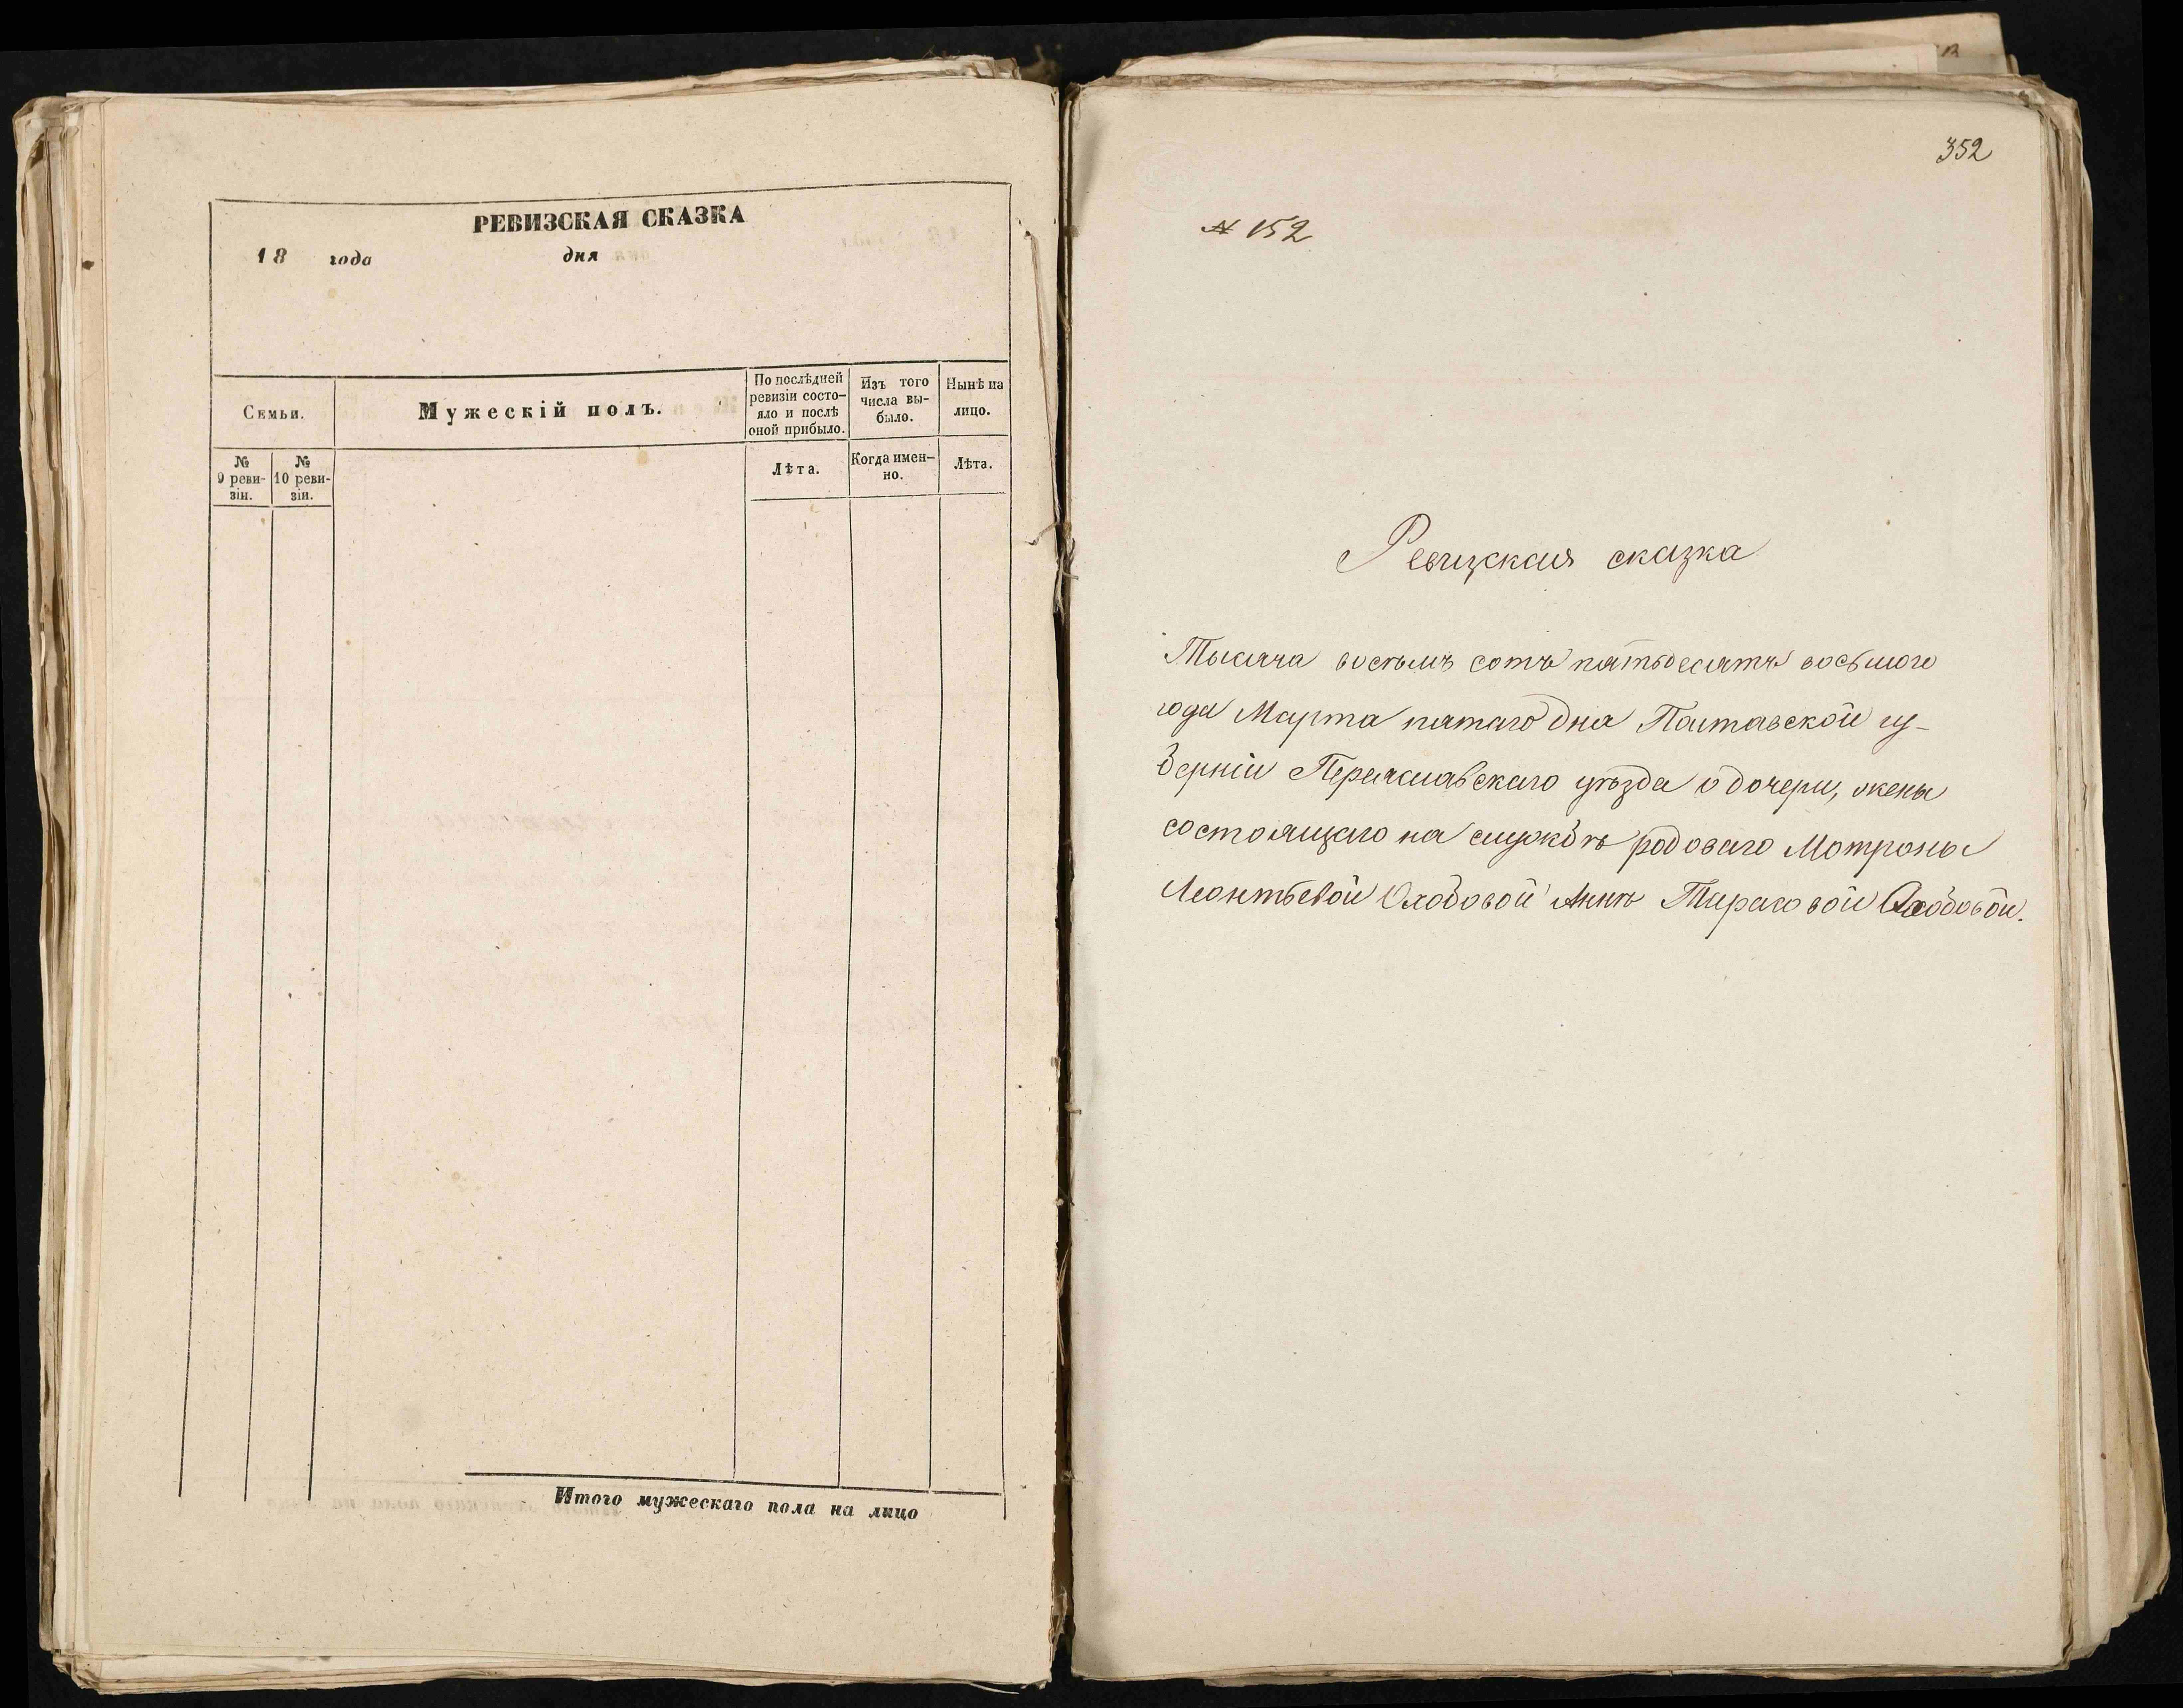 РЕВИЗСКАЯ СКАЗКА
18 года дня
Семьи.
Мужескій полъ.
По послѣдней
ревизіи состо-
яло и послѣ
оной прибыло.
Изъ того
числа вы-
было.
Нынѣ на
лицо.
№
9 реви-
зіи.
№
10 реви-
зіи.
Лѣта.
Когда имен-
но.
Лѣта.
Итого мужескаго пола на лицо
352
№ 152
Ревизская сказка
Тысяча восемъ сотъ пятьдесятъ восьмого
года Марта пятаго дня Полтавской гу-
берніи Переяславскаго уѣзда о дочери, жены
состоящаго на службѣ рядоваго Мотроны
Леонтьевой Слободовой Аннѣ Тарасовой